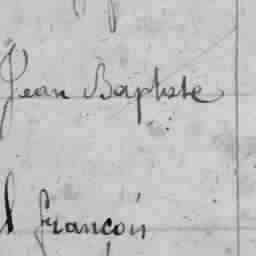 Jean Baptiste
françois